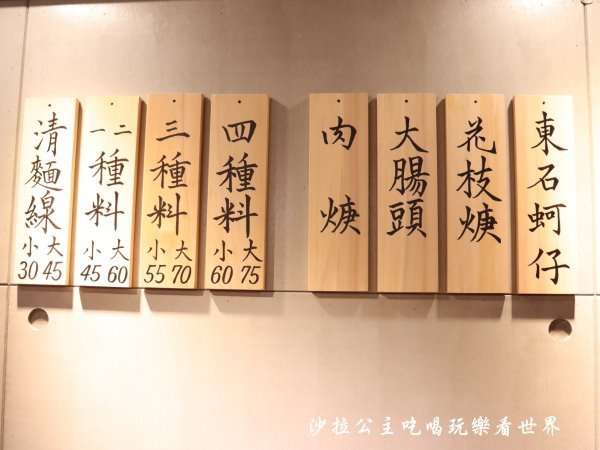 東石蚵仔
花枝焿
大腸頭
肉焿
四種料
大 75
小 60
三種料
大 70
小 55
一二種料
大 60
小 45
清麵線
大 45
小 30
沙拉公主吃喝玩樂看世界